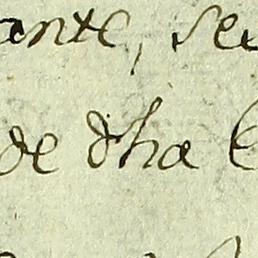 ante, se
de dha